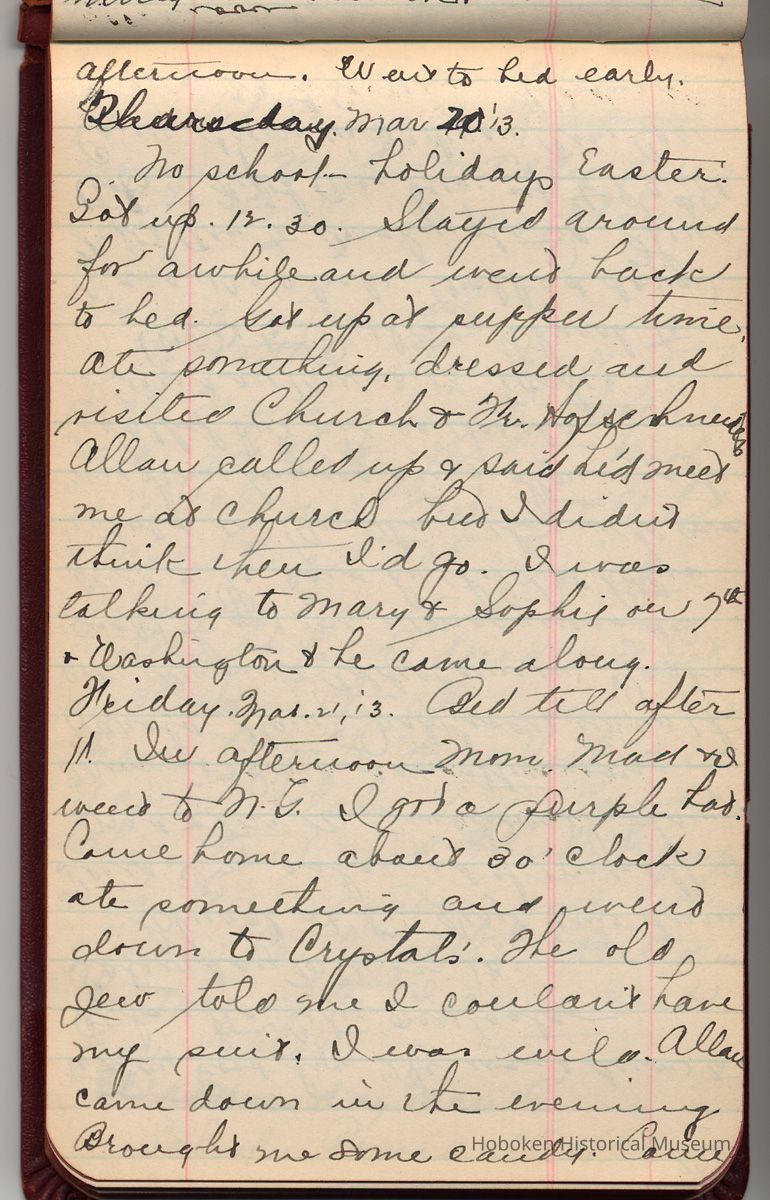 afternoon. Went to bed early.
Thursday. Mar 20 '13.
No school - holidays Easter.
Got up. 12.30. Stayed around
for awhile and went back
to bed. Got up at supper time,
ate something, dressed and
visited Church & Fr. Hofschneider
Allan called up & said he'd meet
me at church but I didn't
think then I'd go. I was
talking to Mary & Sophie on 7th
& Washington & he came along.
Friday. Mar. 21, '13. Bed till after
11. In afternoon Mom. Mad & I
went to N.Y. I got a purple hat.
Came home about 3 o'clock
ate something and went
down to Crystals'. The old
Jew told me I couldn't have
my suit. I was wild. Allan
came down in the evening
Brought me some candy. Came
Hoboken Historical Museum